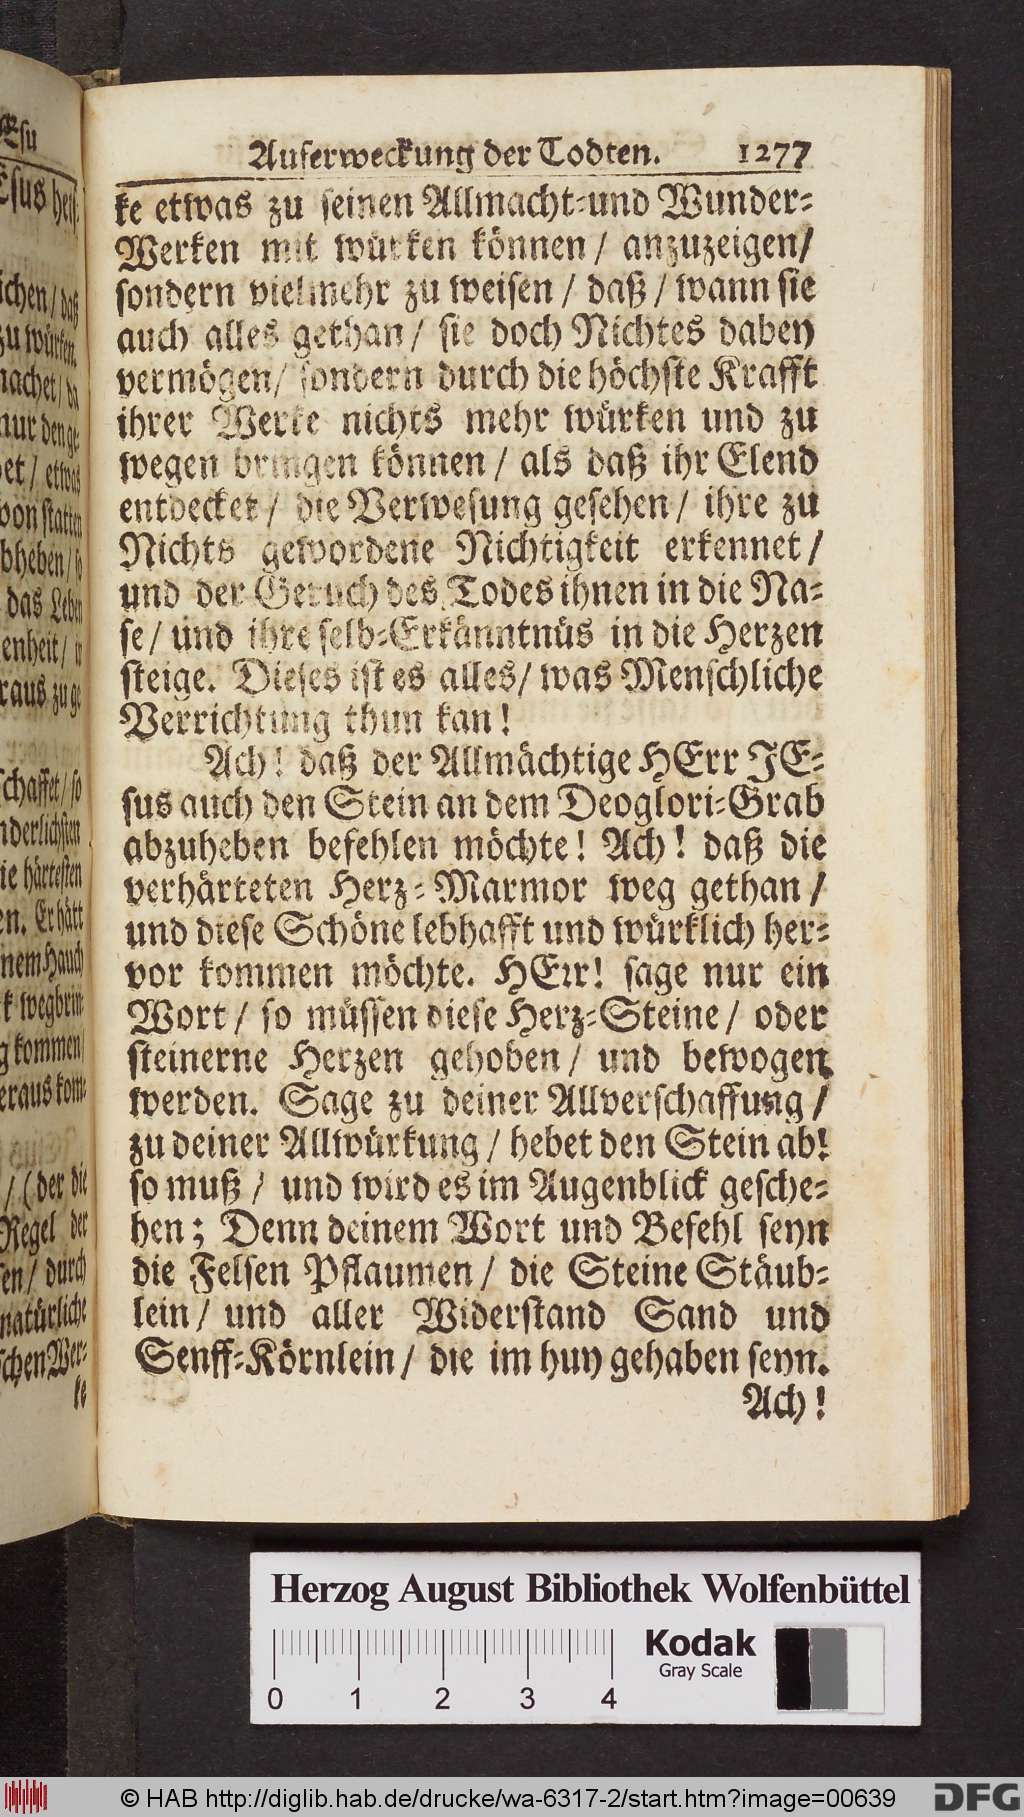 Auferweckung der Todten. 1277
ke etwas zu seinen Allmacht-und Wunder-
Werken mit würken können / anzuzeigen/
sondern vielmehr zu weisen / daß / wann sie
auch alles gethan / sie doch Nichtes dabey
vermögen/ sondern durch die höchste Krafft
ihrer Werke nichts mehr würken und zu
wegen bringen können / als daß ihr Elend
entdecket / die Verwesung gesehen / ihre zu
Nichts gewordene Nichtigkeit erkennet /
und der Geruch des Todes ihnen in die Na-
se / und ihre selb-Erkänntnüs in die Herzen
steige. Dieses ist es alles/ was Menschliche
Verrichtung thun kan!
Ach! daß der Allmächtige HErr JE-
sus auch den Stein an dem Deoglori-Grab
abzuheben befehlen möchte! Ach! daß die
verhärteten Herz-Marmor weg gethan /
und diese Schöne lebhafft und würklich her-
vor kommen möchte. HErr! sage nur ein
Wort / so müssen diese Herz-Steine / oder
steinerne Herzen gehoben / und bewogen
werden. Sage zu deiner Allverschaffung /
zu deiner Allwürkung / hebet den Stein ab!
so muß / und wird es im Augenblick gesche-
hen; Denn deinem Wort und Befehl seyn
die Felsen Pflaumen / die Steine Stäub-
lein / und aller Widerstand Sand und
Senff-Körnlein / die im huy gehaben seyn.
Ach!
Esu
Esus heis-
ichen / daß
zu würken.
machet / da
nur den ge-
et / etwas
von statten
bheben / so
das Leben
enheit /
raus zu ge
schaffet / so
nderlichsten
ie härtesten
en. Er hätt
nem Hauch
k wegbrin-
g kommen/
eraus kom-
/ (der die
Regel der
en / durch
natürliche
schen Wer-
ke
Herzog August Bibliothek Wolfenbüttel
0 1 2 3 4
Kodak
Gray Scale
© HAB http://diglib.hab.de/drucke/wa-6317-2/start.htm?image=00639
DFG